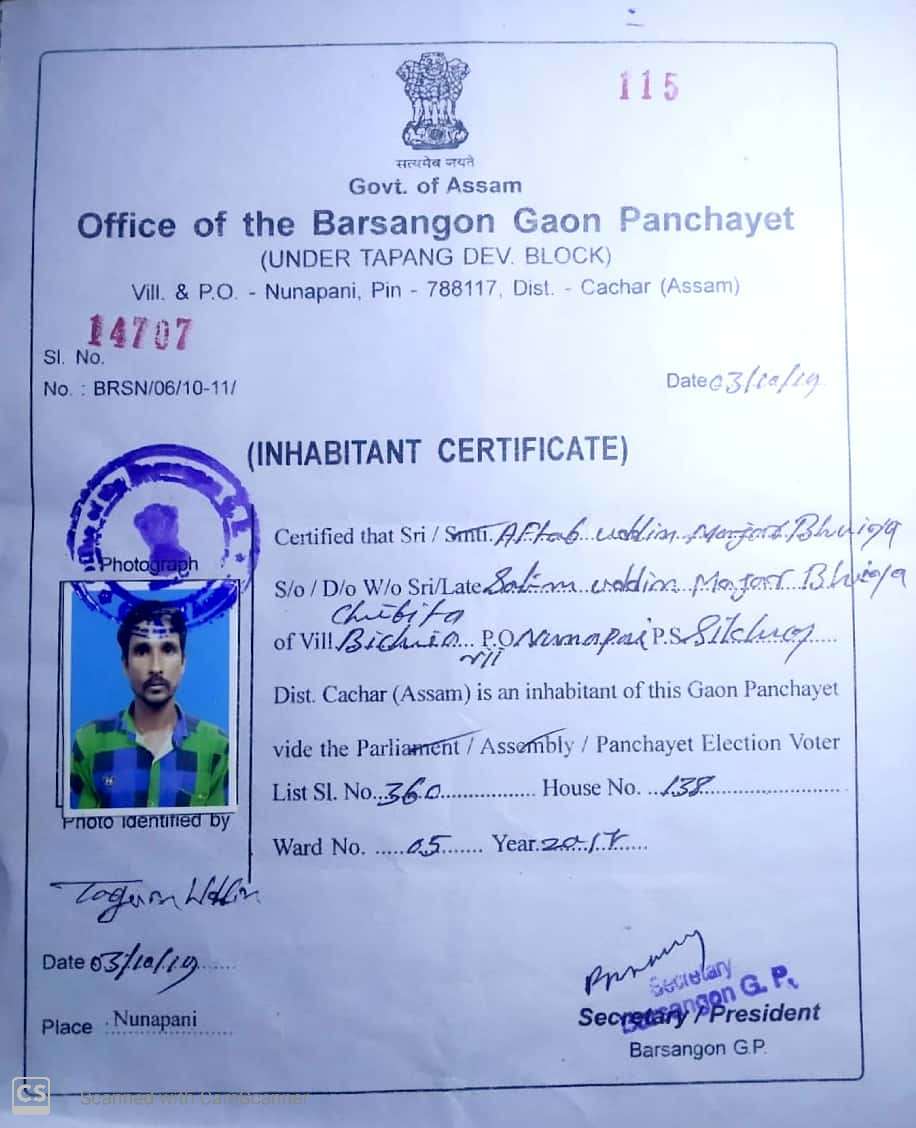 115
सत्यमेव जयते
Govt. of Assam
Office of the Barsangon Gaon Panchayet
(UNDER TAPANG DEV. BLOCK)
Vill. & P.O. - Nunapani, Pin - 788117, Dist. - Cachar (Assam)
14707
Sl. No.
No. : BRSN/06/10-11/
Date 03/10/19
(INHABITANT CERTIFICATE)
Photograph
Certified that Sri / Smti. Aftab uddin Mazar Bhuiya
S/o / D/o W/o Sri/Late Salim uddin Mazar Bhuiya
of Vill. P.O Nunapani P.S. Silchar
Dist. Cachar (Assam) is an inhabitant of this Gaon Panchayet
vide the Parliament / Assembly / Panchayet Election Voter
List Sl. No. 360 House No. 138
Ward No. 05 Year. 2017
Photo Identified by
Date 03/10/19
Place : Nunapani
Secretary
Barsangon G. P.
Secretary / President
Barsangon G.P.
CS Scanned with CamScanner